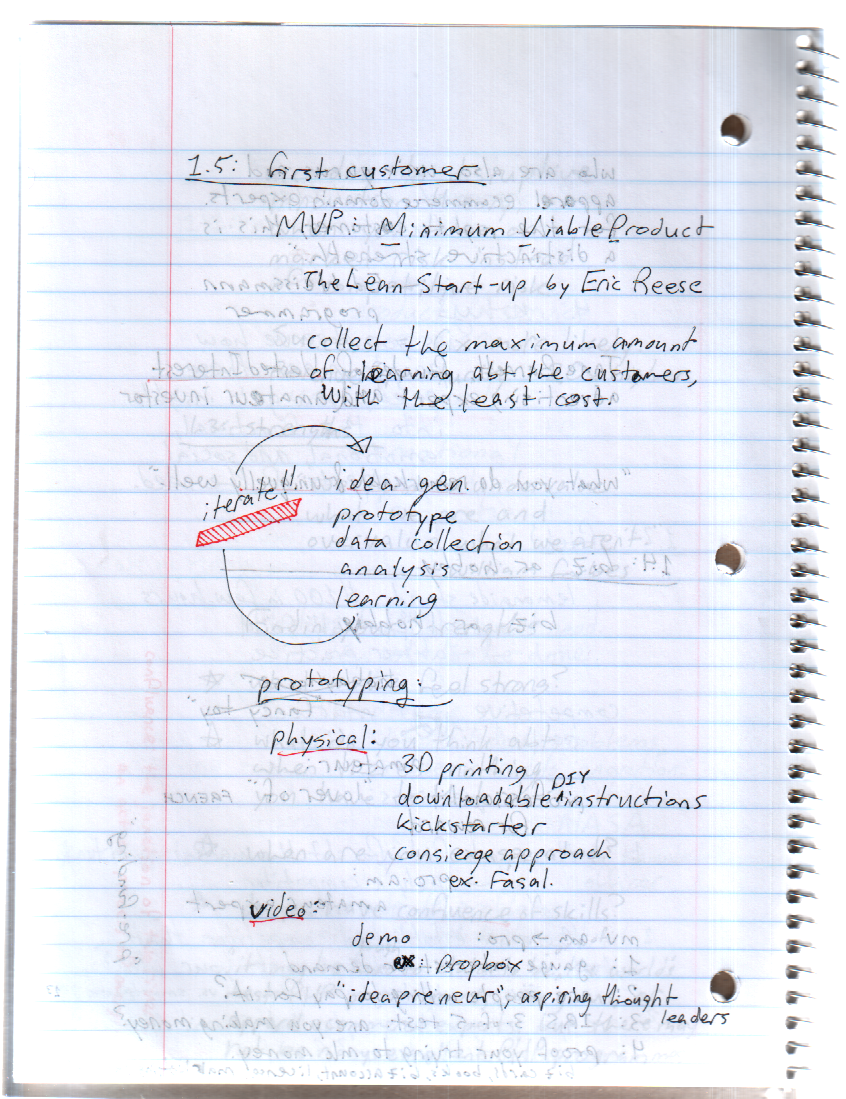 1.5: first customer
MVP: Minimum Viable Product
The Lean Start-up by Eric Reese
collect the maximum amount
of learning abt the customers,
with the least cost.
iterate!!
idea gen.
prototype
data collection
analysis
learning
prototyping:
physical:
3D printing
downloadable DIY instructions
kickstarter
consierge approach
ex. Fasal.
video:
demo
ex: Dropbox
"ideapreneur", aspiring thought
leaders